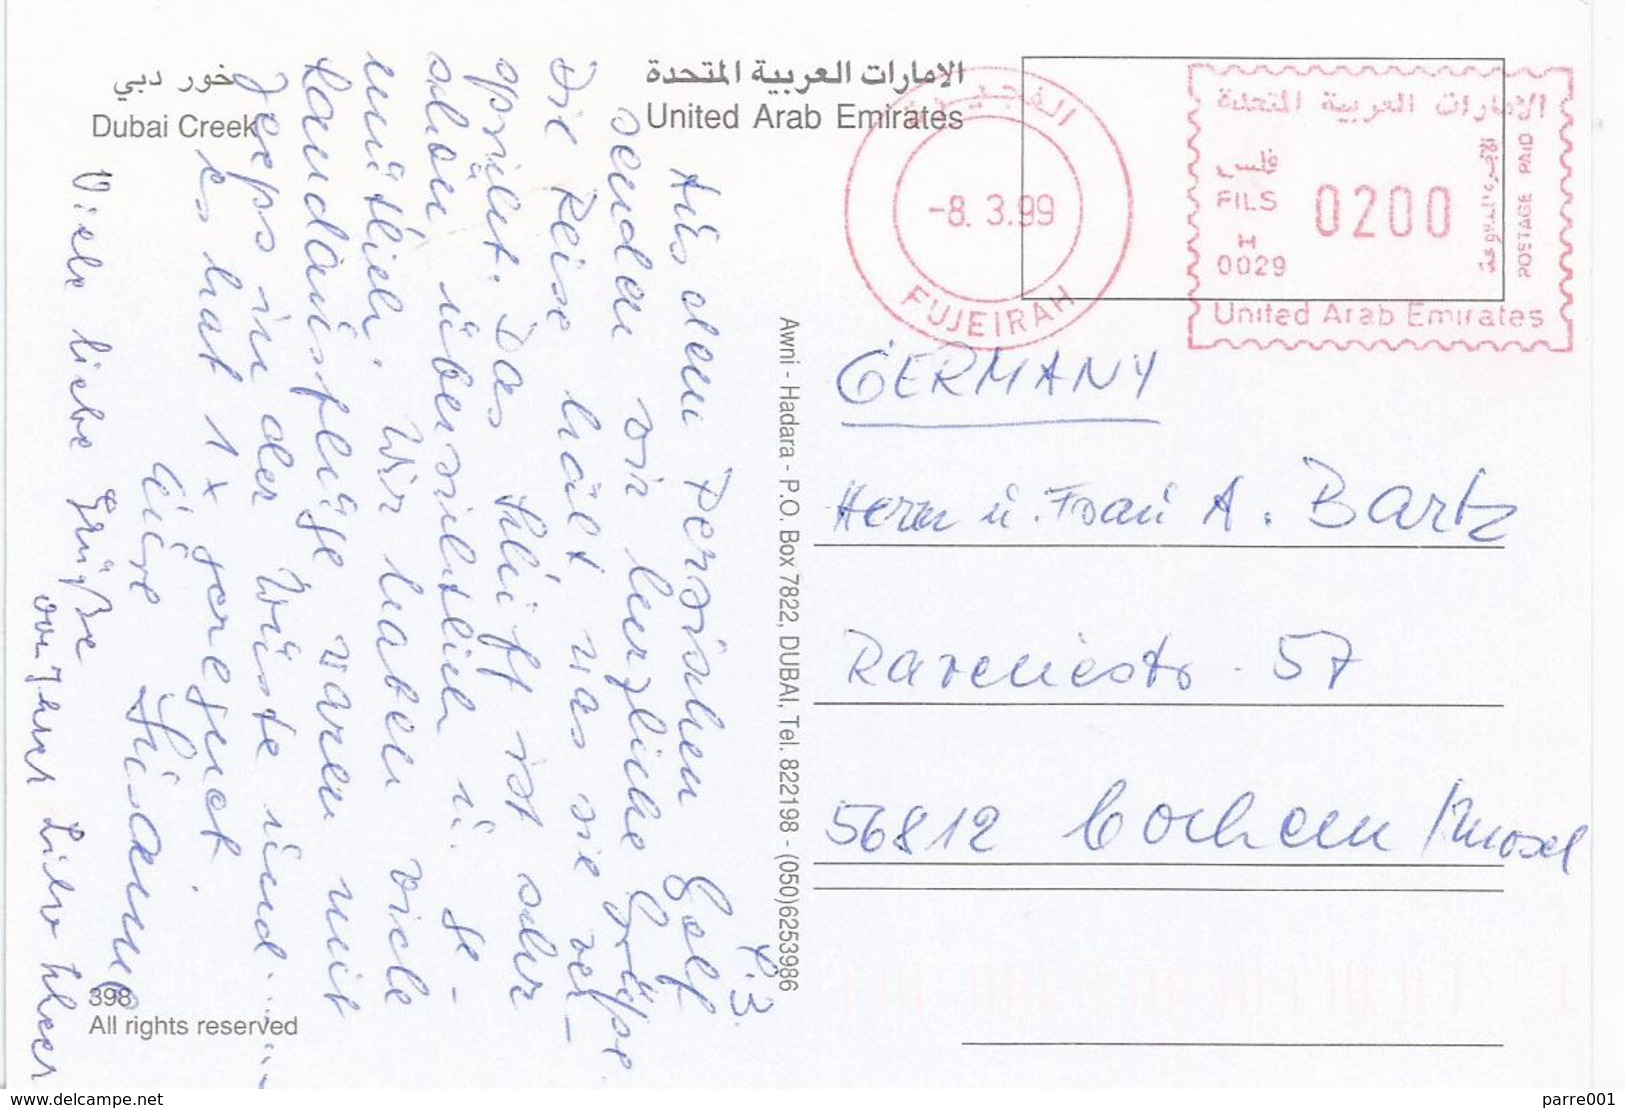 خور دبي
Dubai Creek
الامارات العربية المتحدة
United Arab Emirates
الفجيرة
-8. 3.99
FUJEIRAH
الامارات العربية المتحدة
فلس
FILS
0200
H
0029
POSTAGE PAID
United Arab Emirates
4.3.
Aus dem Persischen Golf
senden wir herzliche Grüße
Die Reise hält was sie ver-
spricht. Das Schiff ist sehr
schön übersichtlich u. ge-
mütlich. Wir haben viele
Landausflüge waren mit
Jeeps in der Wüste und .....
es hat 1 x geregnet.
Eure Susanne
Viele liebe Grüße
von Ihrer
Awni - Hadara - P.O. Box 7822, DUBAI, Tel. 822198 - (050)6253986
GERMANY
Herrn u. Frau A. Bartz
Ravenéstr. 57
56812 Cochem/Mosel
398
All rights reserved
www.delcampe.net
parre001